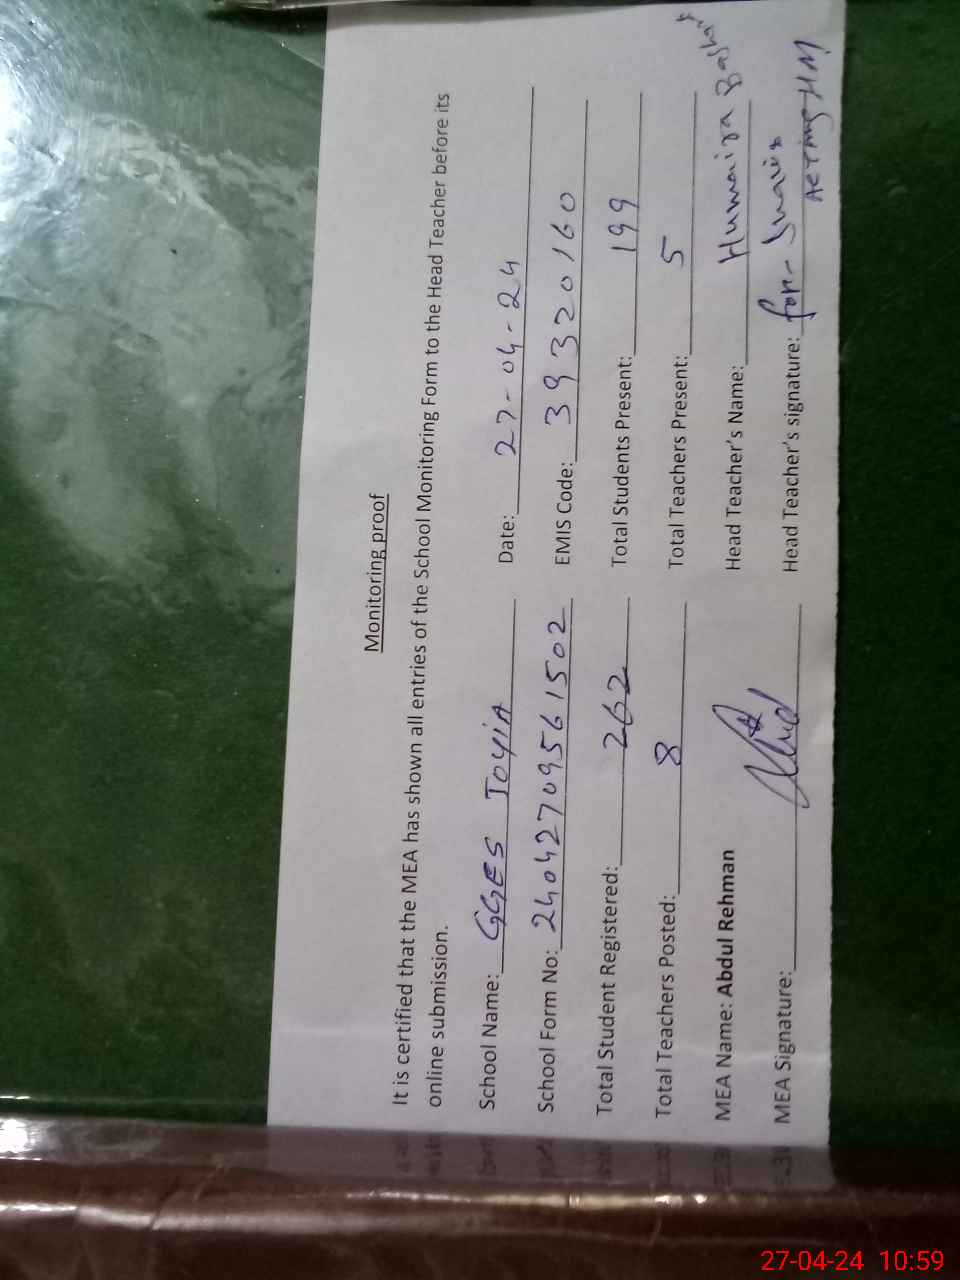 Monitoring proof
It is certified that the MEA has shown all entries of the School Monitoring Form to the Head Teacher before its
online submission.
School Name: GGES JOYIA Date: 27-04-24
School Form No: 24042709561502 EMIS Code: 39320160
Total Student Registered: 262 Total Students Present: 199
Total Teachers Posted: 8 Total Teachers Present: 5
MEA Name: Abdul Rehman Head Teacher's Name: Humaira Bashar
MEA Signature: Head Teacher's signature: for-
Acting HM
27-04-24 10:59